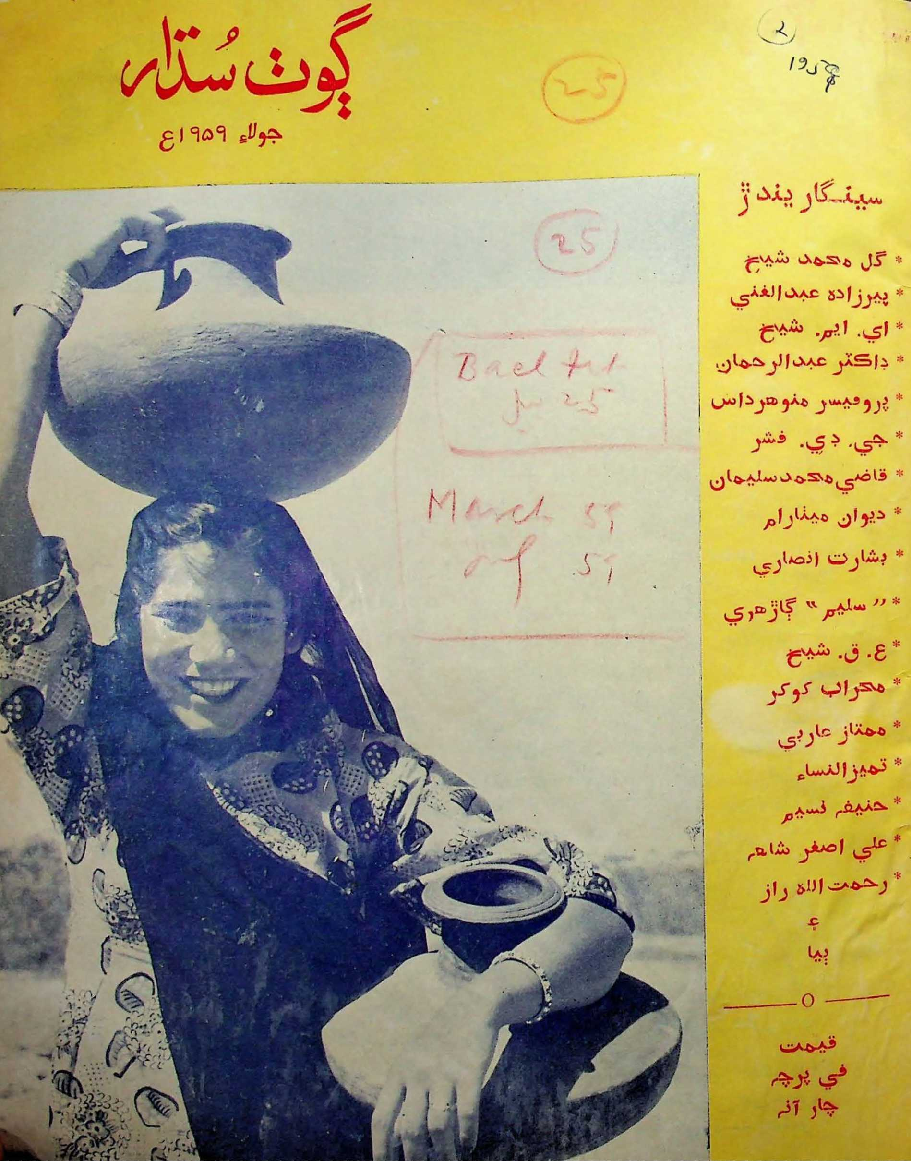 ڳوٺ سُڌار
جولاءِ ۱۹۵۹ع
2
195
25
25
March 59
59
سينگاريندڙ
* گل محمد شيخ
* پيرزاده عبدالغني
* اي. ايم. شيخ
* ڊاڪٽر عبدالرحمان
* پروفيسر منوهرداس
* جي. ڊي. فشر
* قاضي محمد سليمان
* ديوان ميٺارام
* بشارت انصاري
* ”سليم“ ڳاڙهوي
* ع. ق. شيخ
* محراب کوکر
* ممتاز عاربي
* تميزالنساء
* حنيفه نسيم
* علي اصغر شاهه
* رحمت الله راز
۽
ٻيا
قيمت
في پرچہ
چار آنه